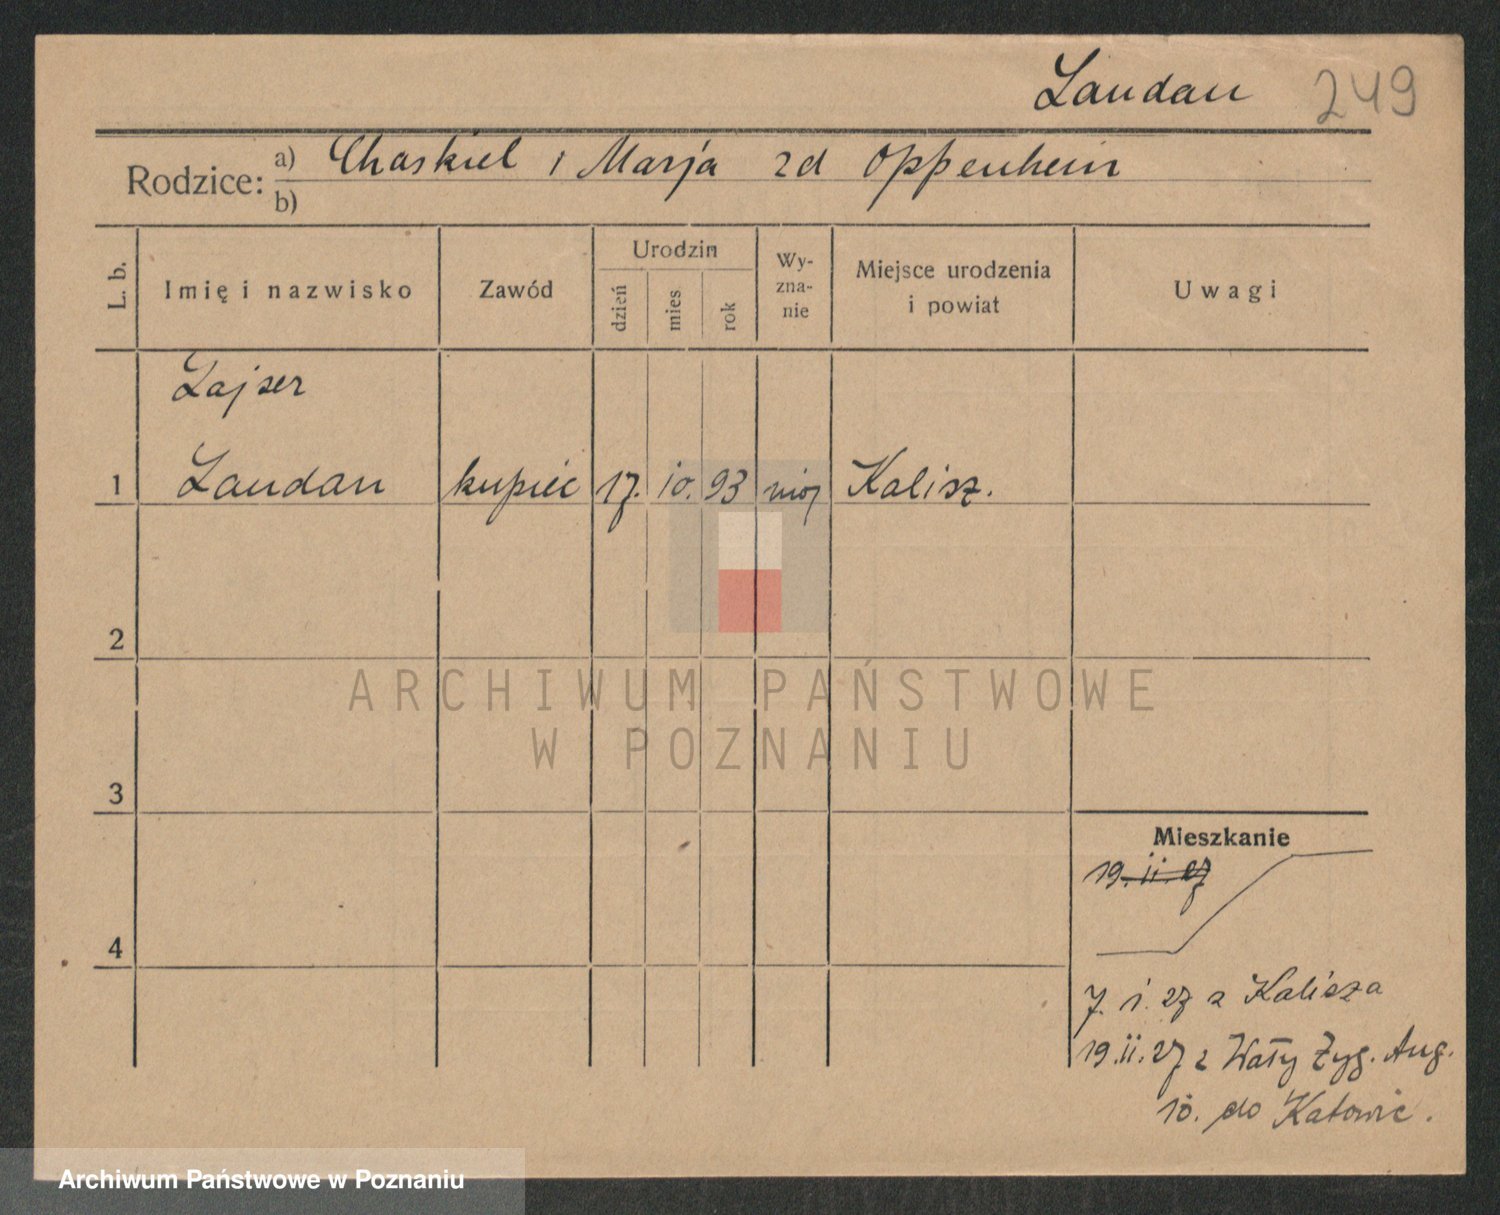 Landau 249
Rodzice: a) Chaskiel i Marja zd Oppenheim
b)
L. b. Imię i nazwisko Zawód Urodzin dzień mies rok Wy-zna-nie Miejsce urodzenia i powiat Uwagi
Lajzer
1 Landau kupiec 17. 10. 93 moj Kalisz.
2
3
4
Mieszkanie
19. ii. 27
7. i. 27 z Kalisza
19. ii. 27 z Wały Zyg. Aug.
10. do Katowic.
ARCHIWUM PAŃSTWOWE
W POZNANIU
Archiwum Państwowe w Poznaniu